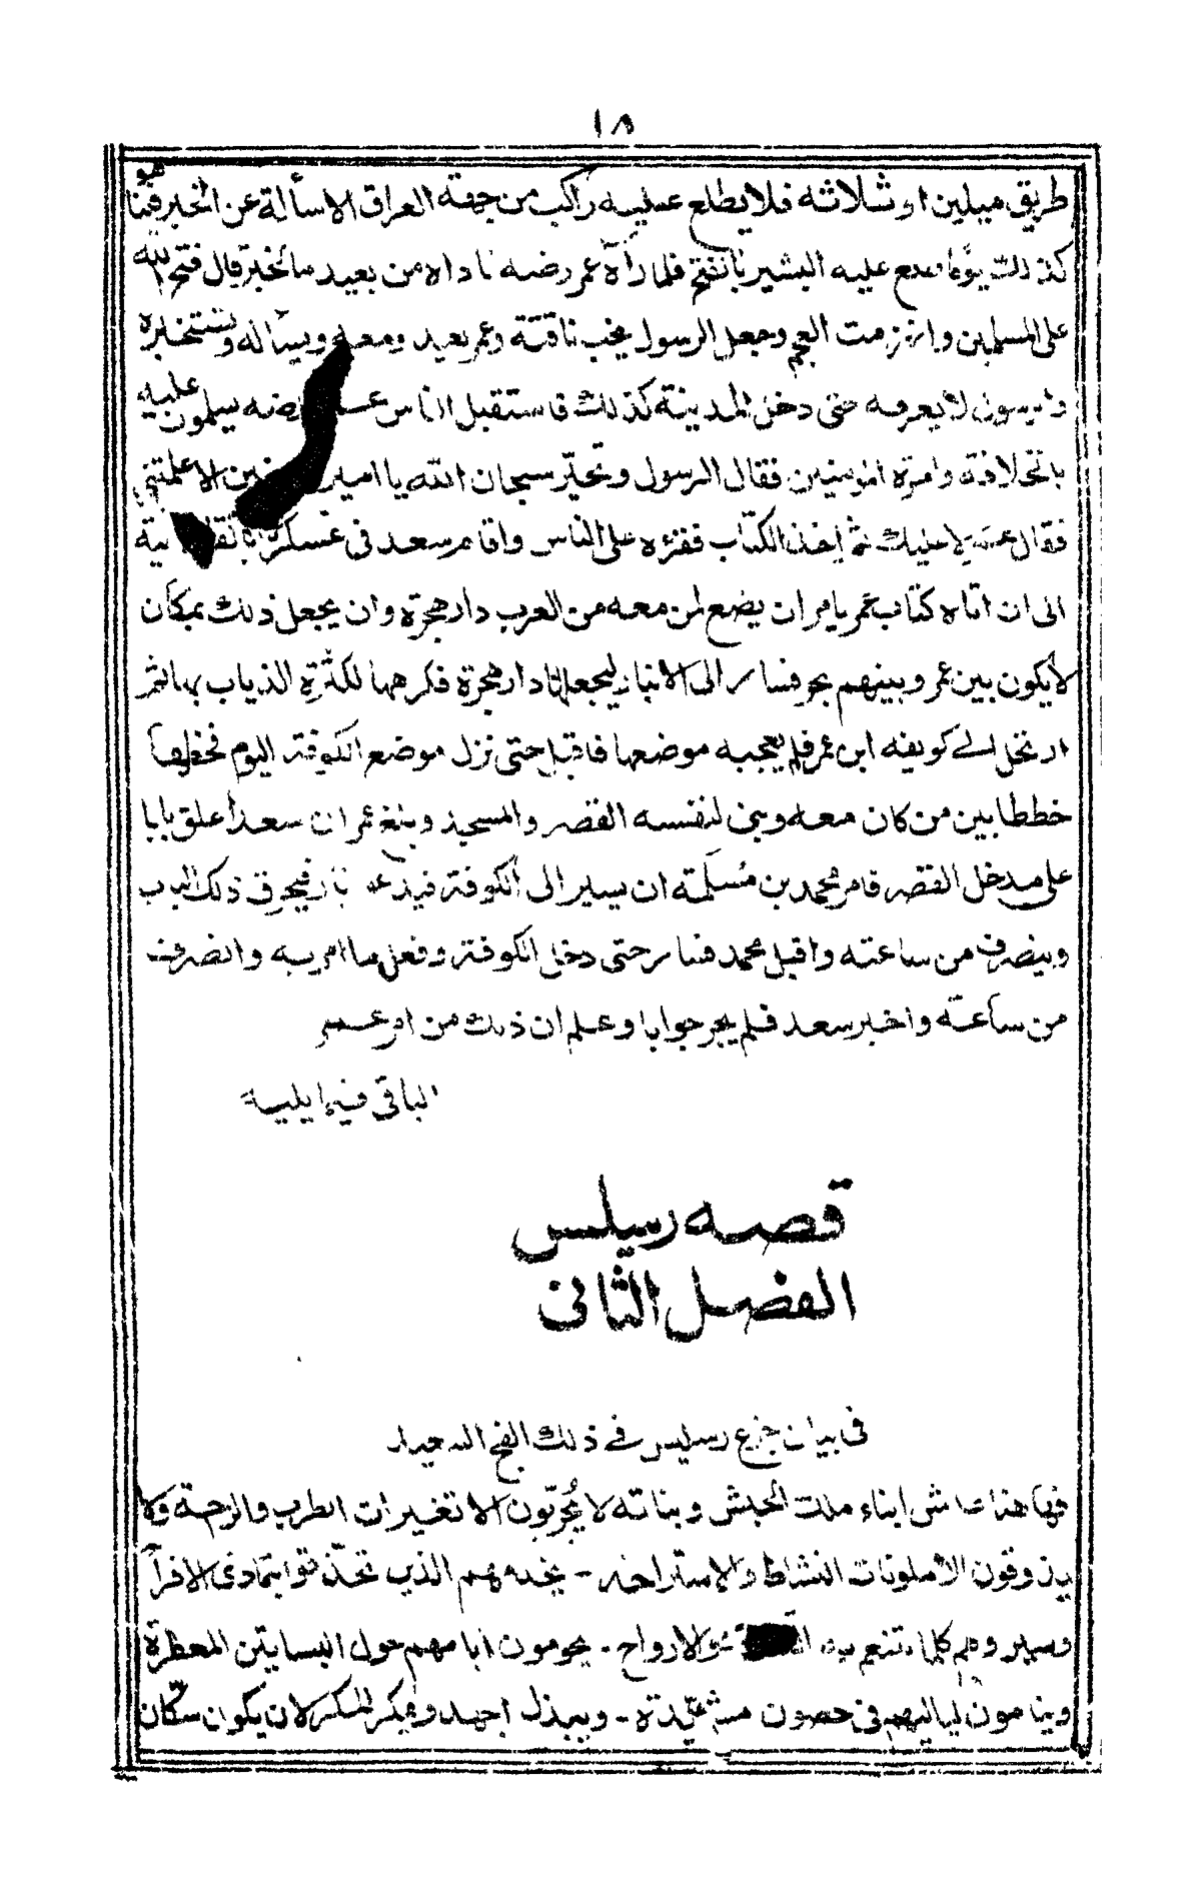 ١٨
طريق ميلين او ثلاثه فلا يطلع عليه راكب من جهته العراق الا سألة عن الخبر فبينا هو
كذلك يوما طلع عليه البشير بالفتح فلما رآه عمر رضه ناداه من بعيد ما الخبر قال فتح الله
على المسلمين وانهزمت العجم وجعل الرسول يخب ناقته وعمر يعدو معه ويسأله ويستخبره
والرسول لا يعرفه حتى دخل المدينة كذلك فاستقبل الناس رضه يسلمون عليه
بالخلافة وامرة المؤمنين فقال الرسول وتحيّر سبحان الله يا امير الا علمتني
فقال عمر لا عليك ثم اخذ الكتاب فقرئه على الناس واقام سعد في عسكره
الى ان اتاه كتاب عمر يامر ان يضع لمن معه من العرب دار هجرة وان يجعل ذلك بمكان
لا يكون بين عمر وبينهم بحر فسار الى الانبار ليجعلها دار هجرة فكرهها لكثرة الذباب بها ثم
ارتحل الى كويفه ابن عمر فلم يعجبه موضعها فاقبل حتى نزل موضع الكوفة اليوم فخطها
خططا بين من كان معه وبنى لنفسه القصر والمسجد وبلغ عمر ان سعدا علق بابا
على مدخل القصر فامر محمد بن مُسلَمته ان يسير الى الكوفة فيدعو بنار فيحرق ذلك الباب
وينصرف من ساعته واقبل محمد فسار حتى دخل الكوفة وفعل ما امر به وانصرف
من ساعته واخبر سعد فلم يحر جوابا وعلم ان ذلك من امر عمر
الباقي فيما يليه
قصه رسيلس
الفصل الثاني
في بيان جزع رسيلس في ذلك الفج السعيد
فها هنا عاش ابناء ملك الحبش وبناته لا يُجرّبون الا تغيرات الطرب والراحة ولا
يذوقون الا ملونات النشاط والاستراحه - يخدمهم الذين تحذقوا بتمادى الافرآ
وسير وهم كلما تتنعم به والارواح - يحومون ايامهم حول البساتين المعطرة
وينامون لياليهم في حصون مشيّدة - ويبذل اجهد ويمكر المكر لان يكون سكّان